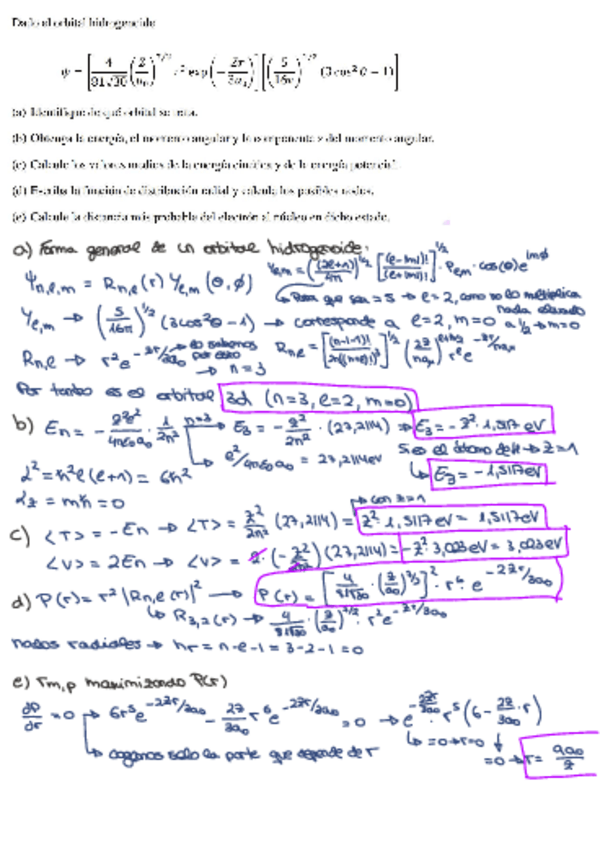 Dado el orbital hidrogenoide
ψ = [4/(81√30) (Z/a₀)^(7/2) r² exp(-Zr/3a₀)] [(5/16π)^(1/2) (3cos²θ − 1)]
(a) Identifique de qué orbital se trata.
(b) Obtenga la energía, el momento angular y la componente z del momento angular.
(c) Calcule los valores medios de la energía cinética y de la energía potencial.
(d) Escriba la función de distribución radial y calcula los posibles nodos.
(e) Calcule la distancia más probable del electrón al núcleo en dicho estado.
a) Forma general de un orbital hidrogenoide:
Ψn,l,m = Rn,l(r) Yl,m(θ,φ)
Yl,m = ((2l+1)/4π)^1/2 [(l-|m|)!/(l+|m|)!]^1/2 · Pl,m · cos(θ) e^imφ
Para que sea = 5 → l=2, como no lo multiplica nada elevado a 1/2 → m=0
Yl,m → (5/16π)^1/2 (3cos²θ − 1) → corresponde a l=2, m=0
Rn,l → r² e^-Zr/3a₀ → lo sabemos por esto → n=3
Por tanto es el orbital 3d (n=3, l=2, m=0)
b) En = − Z²e²/4πε₀a₀ · 1/2n² n=3 → E₃ = − Z²/2n² · (27,2114) ⇒ E₃ = − Z² · 1,5117 eV
e²/4πε₀a₀ = 27,2114 eV
Si es el átomo de H → Z=1
E₃ = − 1,5117 eV
L² = ħ² l(l+1) = 6ħ²
Lz = mħ = 0
con Z=1
c) <T> = −En → <T> = Z²/2n² (27,2114) = Z² · 1,5117 eV = 1,5117 eV
<V> = 2En → <V> = 2 · (−Z²/2n²) (27,2114) = −Z² · 3,023 eV = 3,023 eV
d) P(r) = r² |Rn,l(r)|² → P(r) = [4/81√30 · (Z/a₀)^7/2]² · r⁶ · e^-2Zr/3a₀
R3,2(r) → 4/81√30 · (Z/a₀)^7/2 · r² e^-Zr/3a₀
nodos radiales → nr = n-l-1 = 3-2-1 = 0
e) rm,p maximizando P(r)
dP/dr = 0 → 6r⁵ e^-2Zr/3a₀ − 2Z/3a₀ r⁶ e^-2Zr/3a₀ = 0 → e^-2Zr/3a₀ · r⁵ (6 − 2Z/3a₀ · r)
cogemos solo la parte que depende de r
=0 → r=0
=0 → r = 9a₀/Z